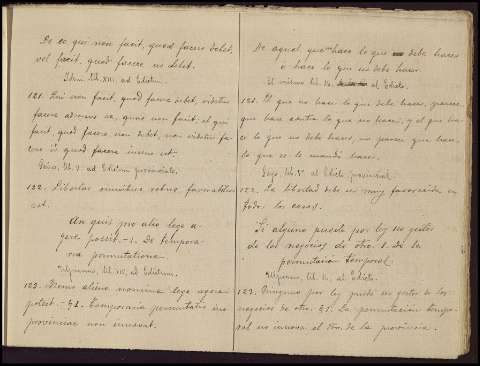 De eo qui non facit, quod facere debet,
vel facit, quod facere non debet.
Idem lib. XIII. ad Edictum.
121. Qui non facit, quod facere debet, videtur
facere adversus ea, quae non facit: et qui
facit, quod facere non debet, non videtur fa-
cere id quod facere jussus est.
Gaius, lib. V. ad Edictum provinciale.
122. Libertas omnibus rebus favorabilior
est.
An quis pro alio lege a-
gere possit. - 1. De tempora-
ria permutatione.
Ulpianus, lib. XV, ad Edictum.
123. Nemo alieno nomine lege agere
potest. - §1. Temporaria permutatio jus
provinciae non innovat.
De aquel que hace lo que debe hacer
o hace lo que no debe hacer.
El mismo lib. al Edicto.
121. El que no hace lo que debe hacer, parece
que hace contra lo que no hace; y el que ha-
ce lo que no debe hacer, no parece que hace
lo que se le manda hacer.
Gayo, lib. V. al Edicto provincial.
122. La libertad debe ser muy favorecida en
todos los casos.
Si alguno puede por ley ser gestor
de los negocios de otro. 1. De la
permutación temporal.
Ulpiano, lib. al Edicto.
123. Ninguno por ley puede ser gestor de los
negocios de otro. §1. La permutación tempo-
ral no innova el dro. de la provincia.